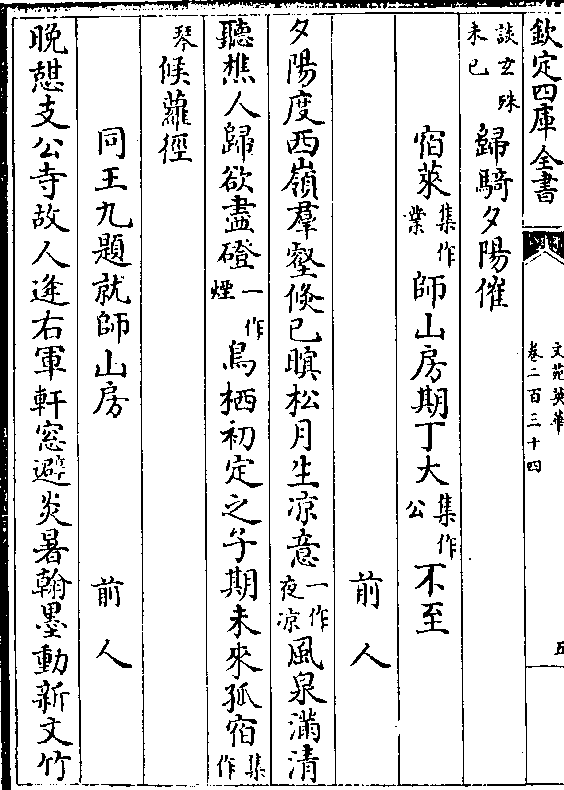 欽定四庫全書
文苑英華
卷二百三十四
五
談玄殊未已歸騎夕陽催
宿萊集作業師山房期丁大集作公不至
前人
夕陽度西嶺羣壑倐已暝松月生凉意一作夜凉風泉滿清
聽樵人歸欲盡磴一作煙鳥栖初定之子期未來孤宿集作
琴候蘿徑
同王九題就師山房
前人
晚憇支公寺故人逢右軍軒窓避炎暑翰墨動新文竹